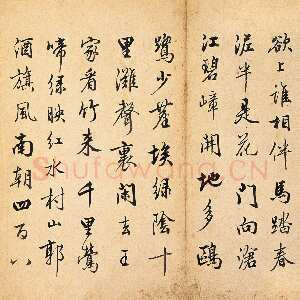 欲上誰相伴馬踏春
泥半是花門向滄
江碧嶂開地多鷗
鷺少塵埃綠陰十
里灘聲裏閑去王
家看竹來千里鶯
啼綠映紅水村山郭
酒旗風南朝四百八
Shufawang.cn